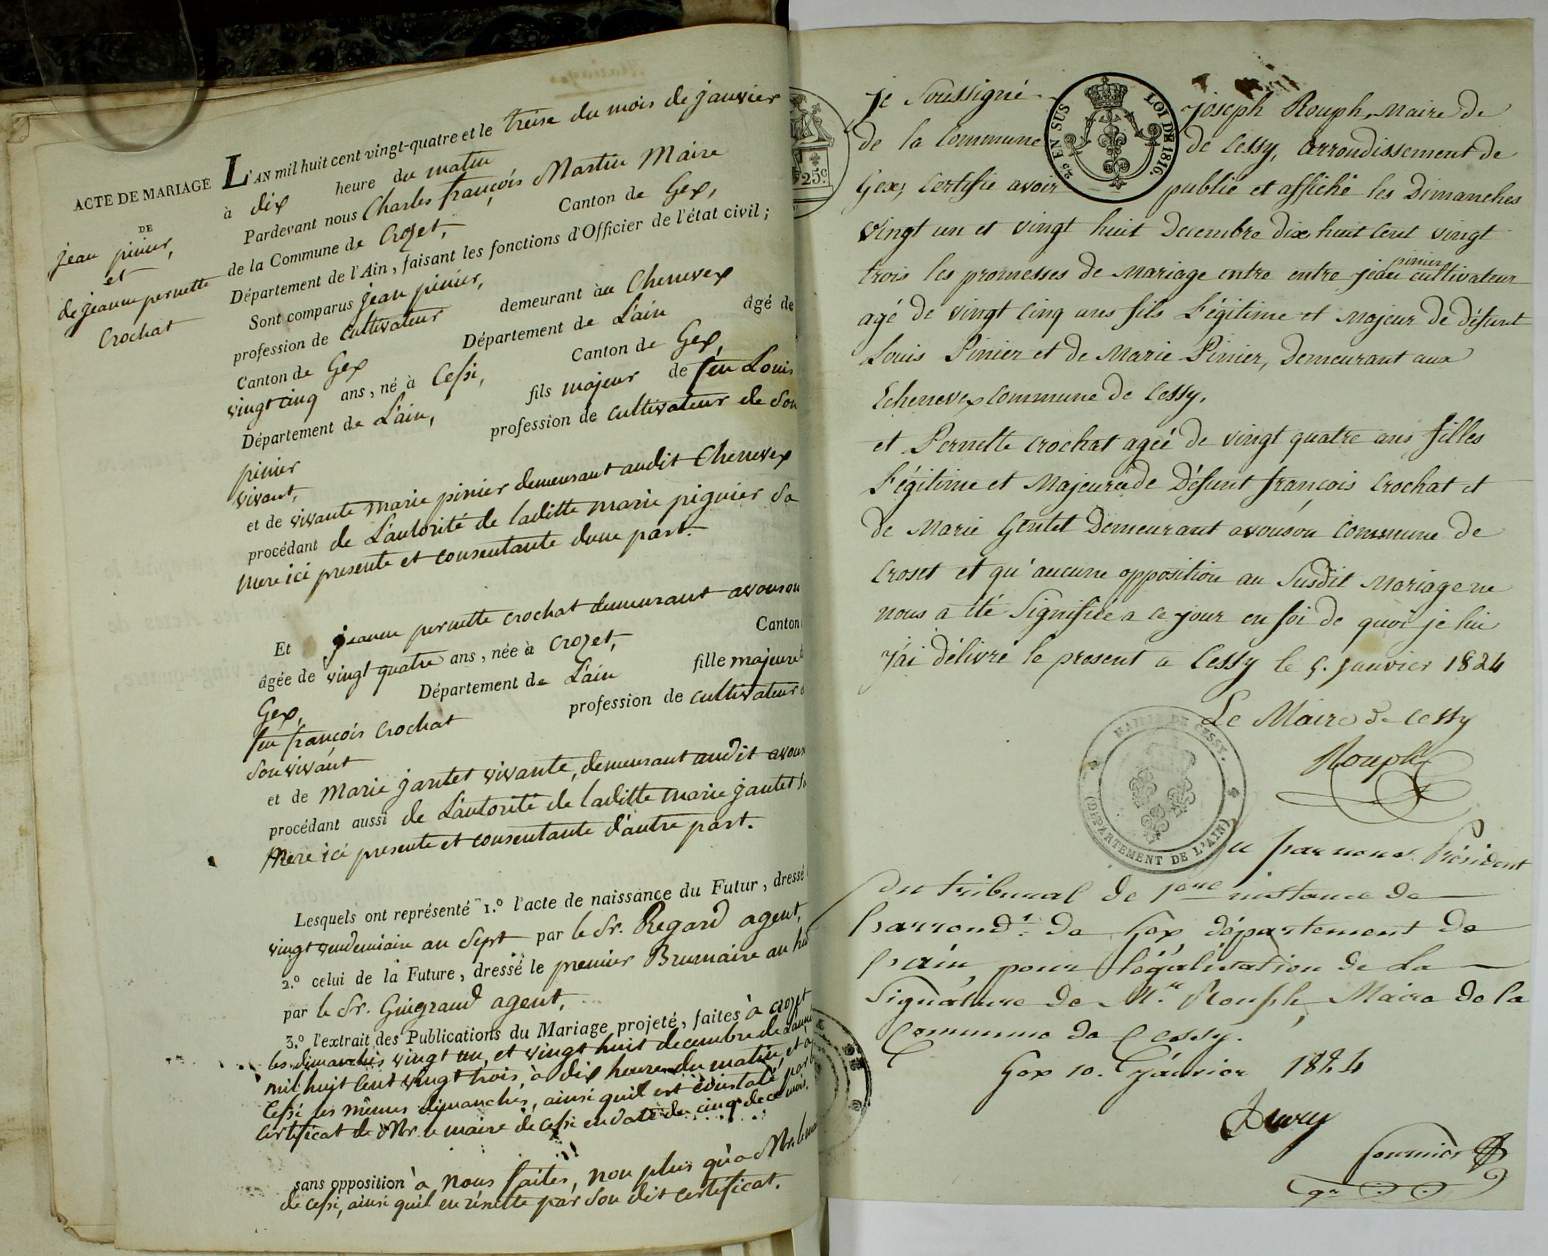 ACTE DE MARIAGE
DE
jean pinier,
et
de jeanne pernette
Crochat
L'AN mil huit cent vingt-quatre et le treise du mois de janvier
à dix heure du matin
Pardevant nous Charles françois Martin Maire
de la Commune de Crozet, Canton de Gex,
Département de l'Ain, faisant les fonctions d'Officier de l'état civil;
Sont comparus jean pinier,
profession de cultivateur demeurant au Chenevex
Canton de Gex Département de L'ain âgé de
vingt cinq ans, né à Cessi, Canton de Gex,
Département de L'ain, fils majeur de feu Louis
pinier profession de cultivateur de son
vivant,
et de vivante marie pinier demeurant audit Chenevex
procédant de L'autorité de laditte marie pignier sa
mere ici presente et consentante d'une part.
Et jeanne pernette crochat demeurant avouson
agée de vingt quatre ans, née à Crozet, Canton
Gex, Département de L'ain fille majeure
feu françois Crochat profession de cultivateur
son vivant
et de Marie jantet vivante, demeurant audit avous
procédant aussi de L'autorité de laditte marie jantet sa
Mere ici presente et consentante d'autre part.
Lesquels ont représenté 1.° l'acte de naissance du Futur, dressé
vingt vendemiaire an Sept par le Sr. Regard agent,
2.° celui de la Future, dressé le premier Brumaire an hui
par le Sr. Guigraud agent,
3.° l'extrait des Publications du Mariage projeté, faites à Crozet
les dimanches vingt un, et vingt huit decembre de L'anné
mil huit cent vingt trois, à dix heures du matin, et a
Cessi les mêmes dimanches, ainsi quil est constaté par le
certificat de Mr. le maire de Cessi en date du cinq de ce mois.
sans opposition à Nous faites, non plus qu'a Mr. le maire
de cessi, ainsi quil en résulte par son dit certificat.
25c
25 EN SUS
LOI DE 1816
Je Soussigné Joseph Rouph, Maire de
de la Commune de Cessy, arrondissement de
Gex; certifie avoir publié et affiché les Dimanches
vingt un et vingt huit Decembre Dix huit cent vingt
trois les promesses de Mariage entre entre jean pinier cultivateur
agé de vingt cinq ans fils Légitime et Majeur de défunt
Louis Pinier et de Marie Pinier, Demeurant aux
Echenevex commune de Cessy.
et Pernette Crochat agée de vingt quatre ans filles
Légitime et Majeure de Défunt françois Crochat et
de Marie Gentet Demeurant avouson Commune de
Croset et qu'aucune opposition au Susdit Mariage ne
nous a été Signifiée a ce jour en foi de quoi je lui
j'ai délivré le present a Cessy le 5. Janvier 1824
Le Maire de Cessy
Rouph
MAIRIE DE CESSY.
(DÉPARTEMENT DE L'AIN)
Vu par nous Président
du tribunal de 1ere instance de
l'arrondt. de Gex département de
l'ain, pour légalisation de la
Signature de Mr. Rouph, Maire de la
Commune de Cessy.
Gex 10. Janvier 1824
fournier
gr